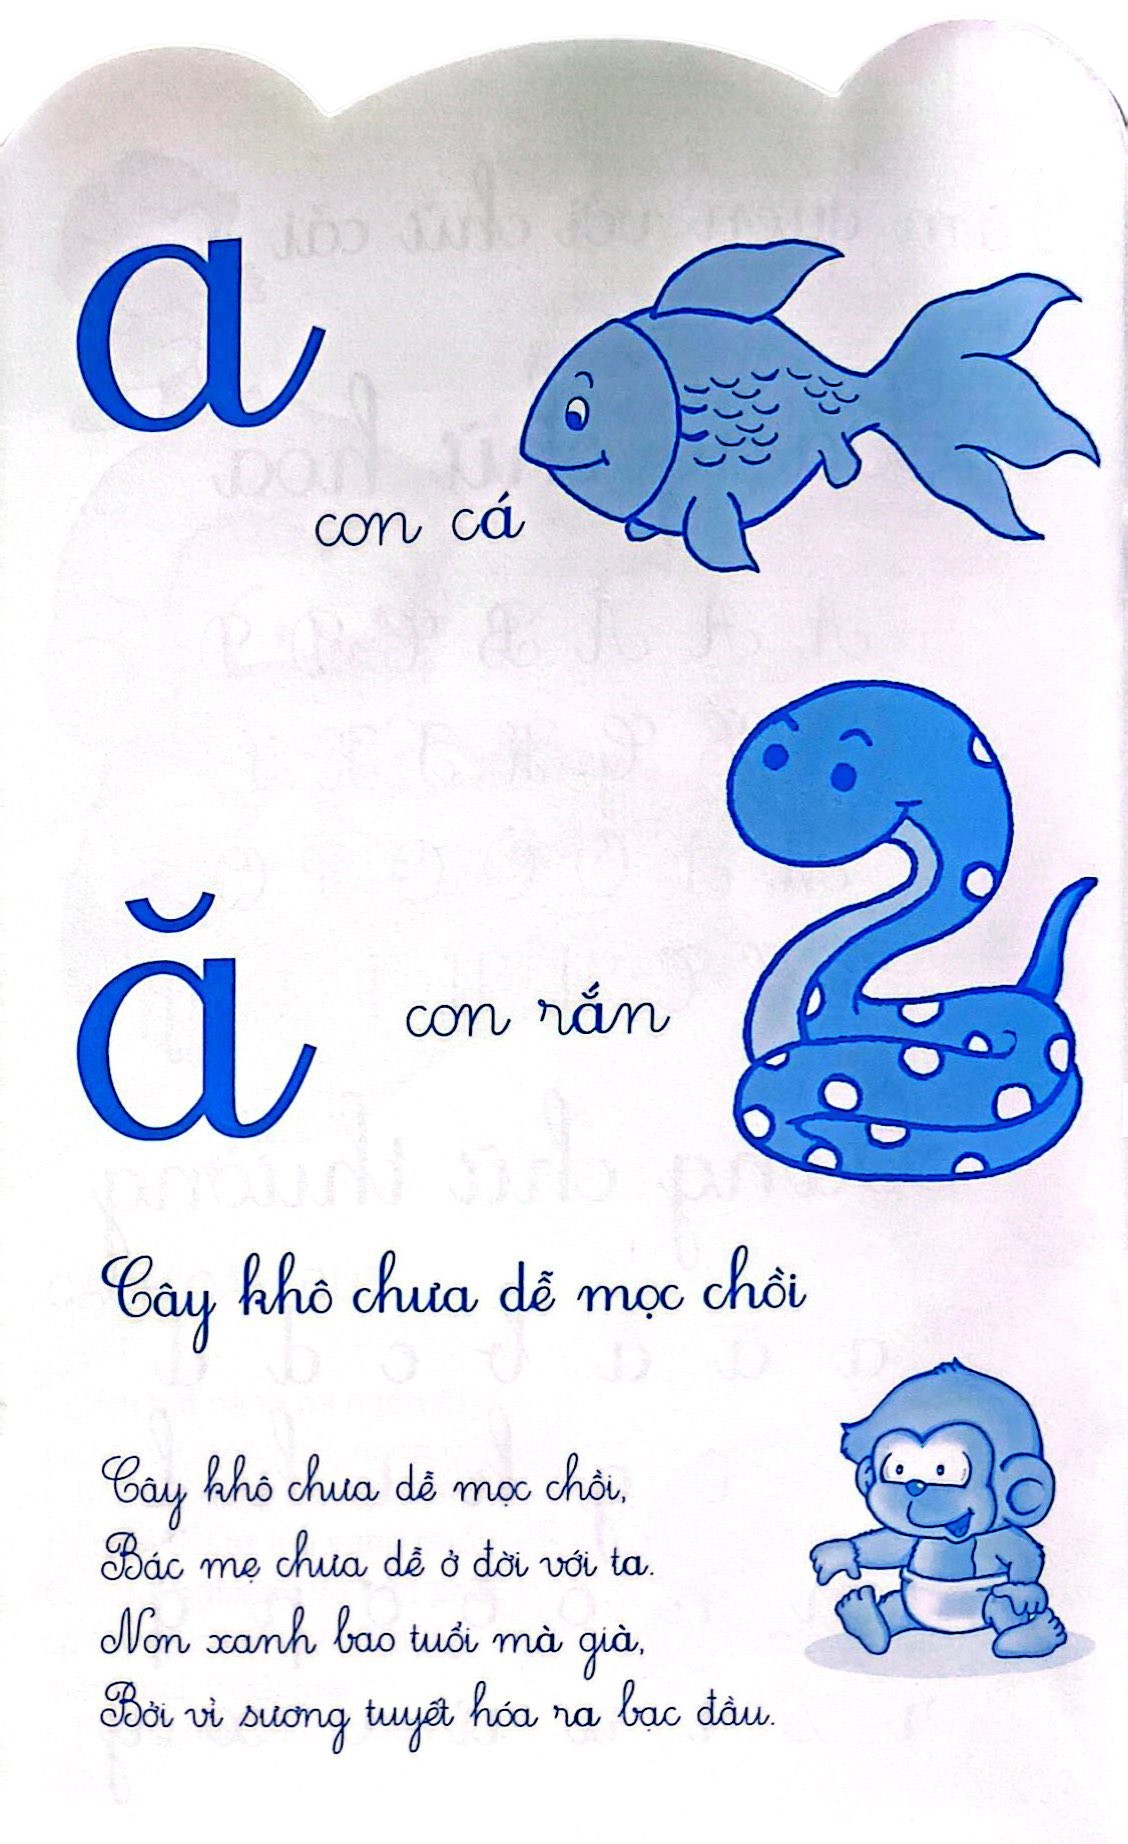 a
con cá
ă
con rắn
Cây khô chưa dễ mọc chồi
Cây khô chưa dễ mọc chồi,
Bác mẹ chưa dễ ở đời với ta.
Non xanh bao tuổi mà già,
Bởi vì sương tuyết hóa ra bạc đầu.